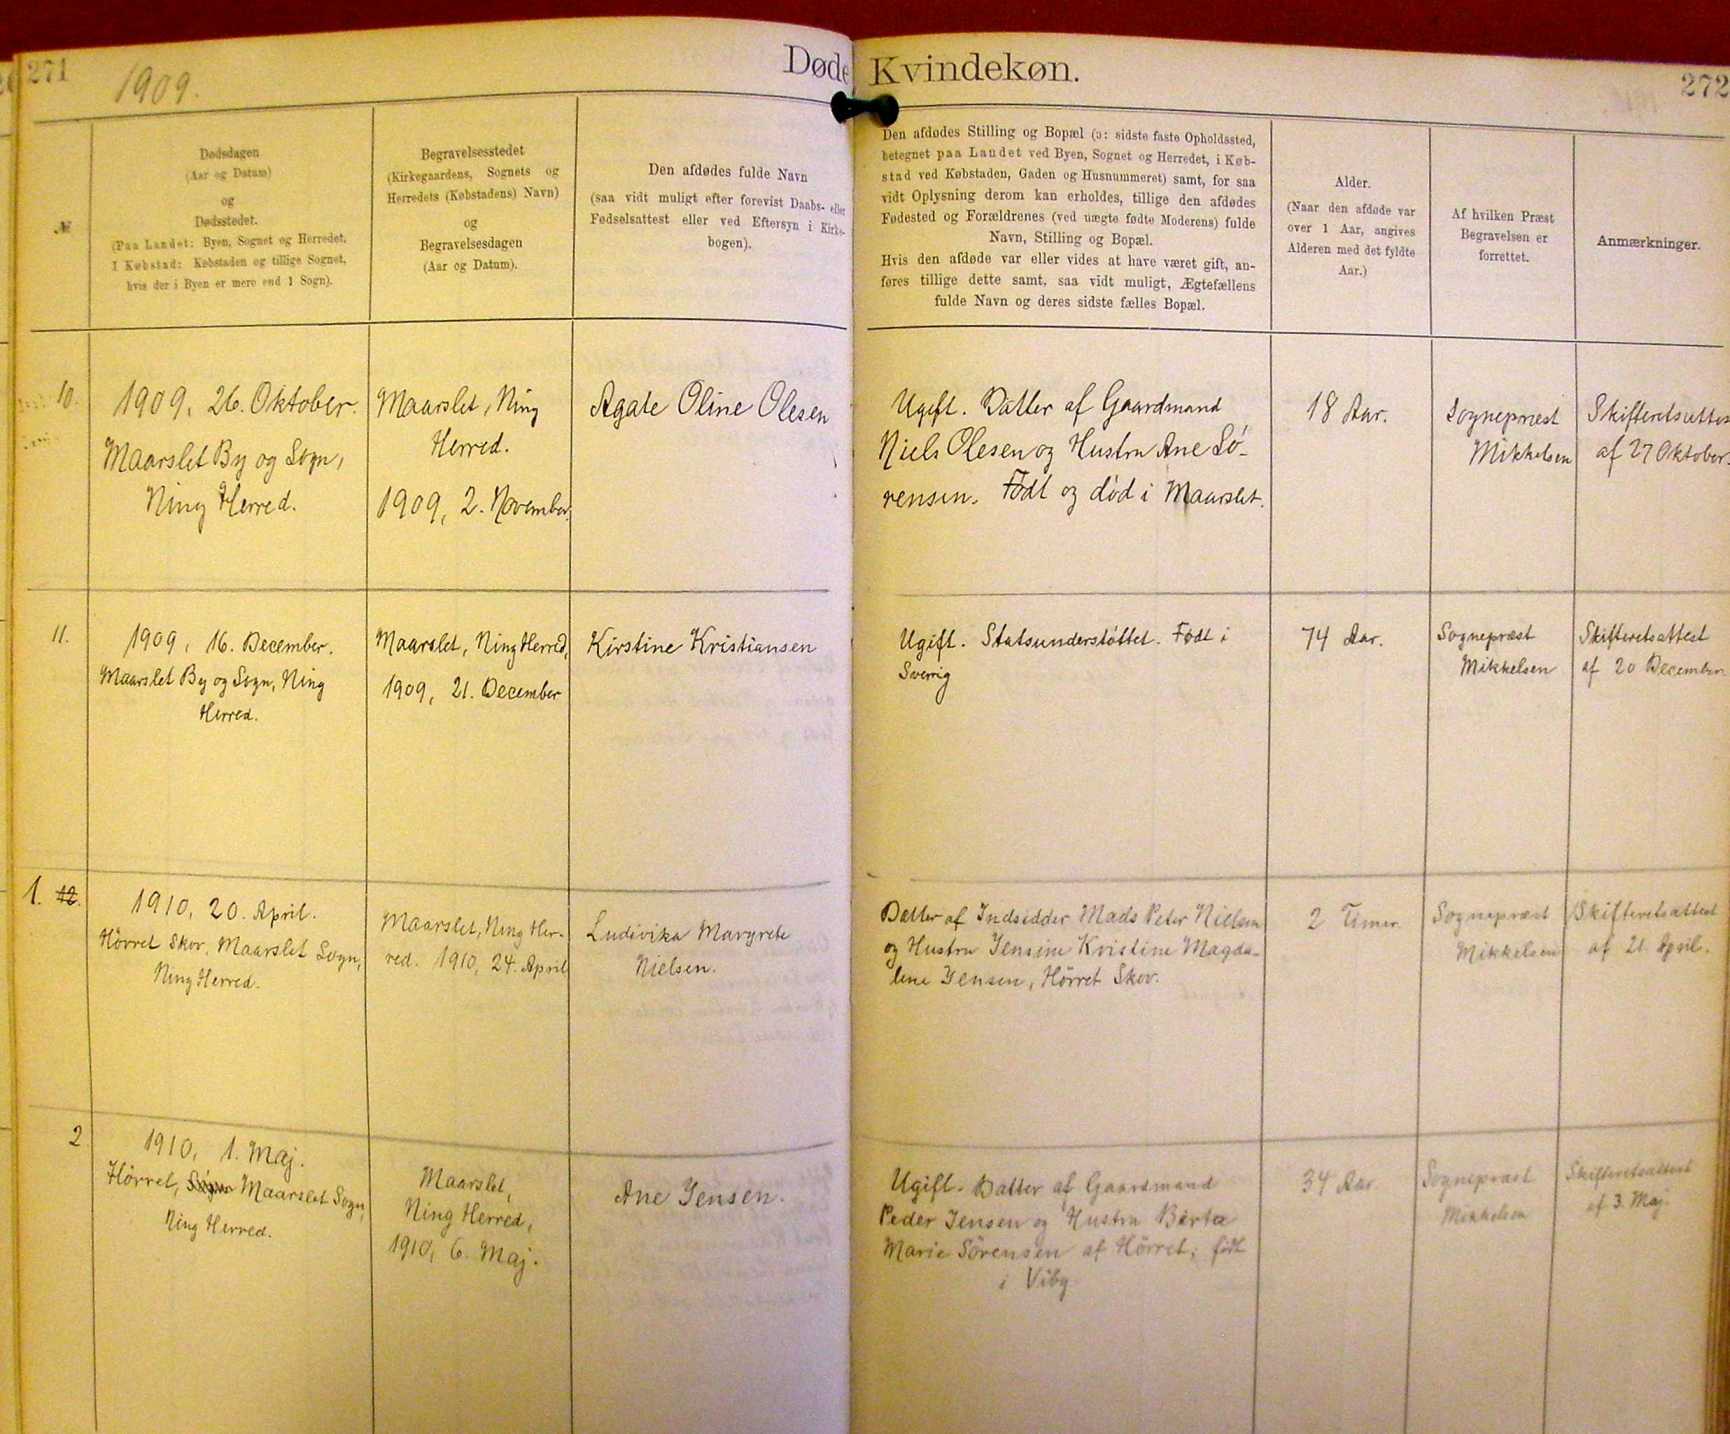 271
1909.
Døde
Kvindekøn.
272
№
Dødsdagen
(Aar og Datum)
og
Dødsstedet.
(Paa Landet: Byen, Sognet og Herredet,
I Købstad: Købstaden og tillige Sognet,
hvis der i Byen er mere end 1 Sogn).
Begravelsesstedet
(Kirkegaardens, Sognets og
Herredets (Købstadens) Navn)
og
Begravelsesdagen
(Aar og Datum).
Den afdødes fulde Navn
(saa vidt muligt efter forevist Daabs- eller
Fødselsattest eller ved Eftersyn i Kirke-
bogen).
Den afdødes Stilling og Bopæl (ɔ: sidste faste Opholdssted,
betegnet paa Landet ved Byen, Sognet og Herredet, i Køb-
stad ved Købstaden, Gaden og Husnummeret) samt, for saa
vidt Oplysning derom kan erholdes, tillige den afdødes
Fødested og Forældrenes (ved uægte fødte Moderens) fulde
Navn, Stilling og Bopæl.
Hvis den afdøde var eller vides at have været gift, an-
føres tillige dette samt, saa vidt muligt, Ægtefællens
fulde Navn og deres sidste fælles Bopæl.
Alder.
(Naar den afdøde var
over 1 Aar, angives
Alderen med det fyldte
Aar.)
Af hvilken Præst
Begravelsen er
forrettet.
Anmærkninger.
10.
1909, 26. Oktober.
Maarslet By og Sogn,
Ning Herred.
Maarslet, Ning
Herred.
1909, 2. November.
Agate Oline Olesen
Ugift. Datter af Gaardmand
Niels Olesen og Hustru Ane Sö-
rensen. Född og död i Maarslet.
18 Aar.
Sognepræst
Mikkelsen
Skifteretsattest
af 27 Oktober.
11.
1909, 16. December.
Maarslet By og Sogn, Ning
Herred.
Maarslet, Ning Herred,
1909, 21. December
Kirstine Kristiansen
Ugift. Statsunderstöttet. Född i
Sverrig
74 Aar.
Sognepræst
Mikkelsen
Skifteretsattest
af 20 December
1. 12.
1910, 20. April.
Hörret Skov, Maarslet Sogn,
Ning Herred.
Maarslet, Ning Her-
red. 1910, 24. April
Ludivika Margrete
Nielsen.
Datter af Indsidder Mads Peter Nielsen
og Hustru Jensine Kristine Magda-
lene Jensen, Hörret Skov.
2 Timer.
Sognepræst
Mikkelsen
Skifteretsattest
af 21. April.
2
1910, 1. Maj.
Hörret, Sogn Maarslet Sogn,
Ning Herred.
Maarslet,
Ning Herred,
1910, 6. Maj.
Ane Jensen.
Ugift. Datter af Gaardmand
Peder Jensen og Hustru Birta
Marie Sörensen af Hörret, født
i Viby
34 Aar.
Sognepræst
Mikkelsen
Skifteretsattest
af 3. Maj.